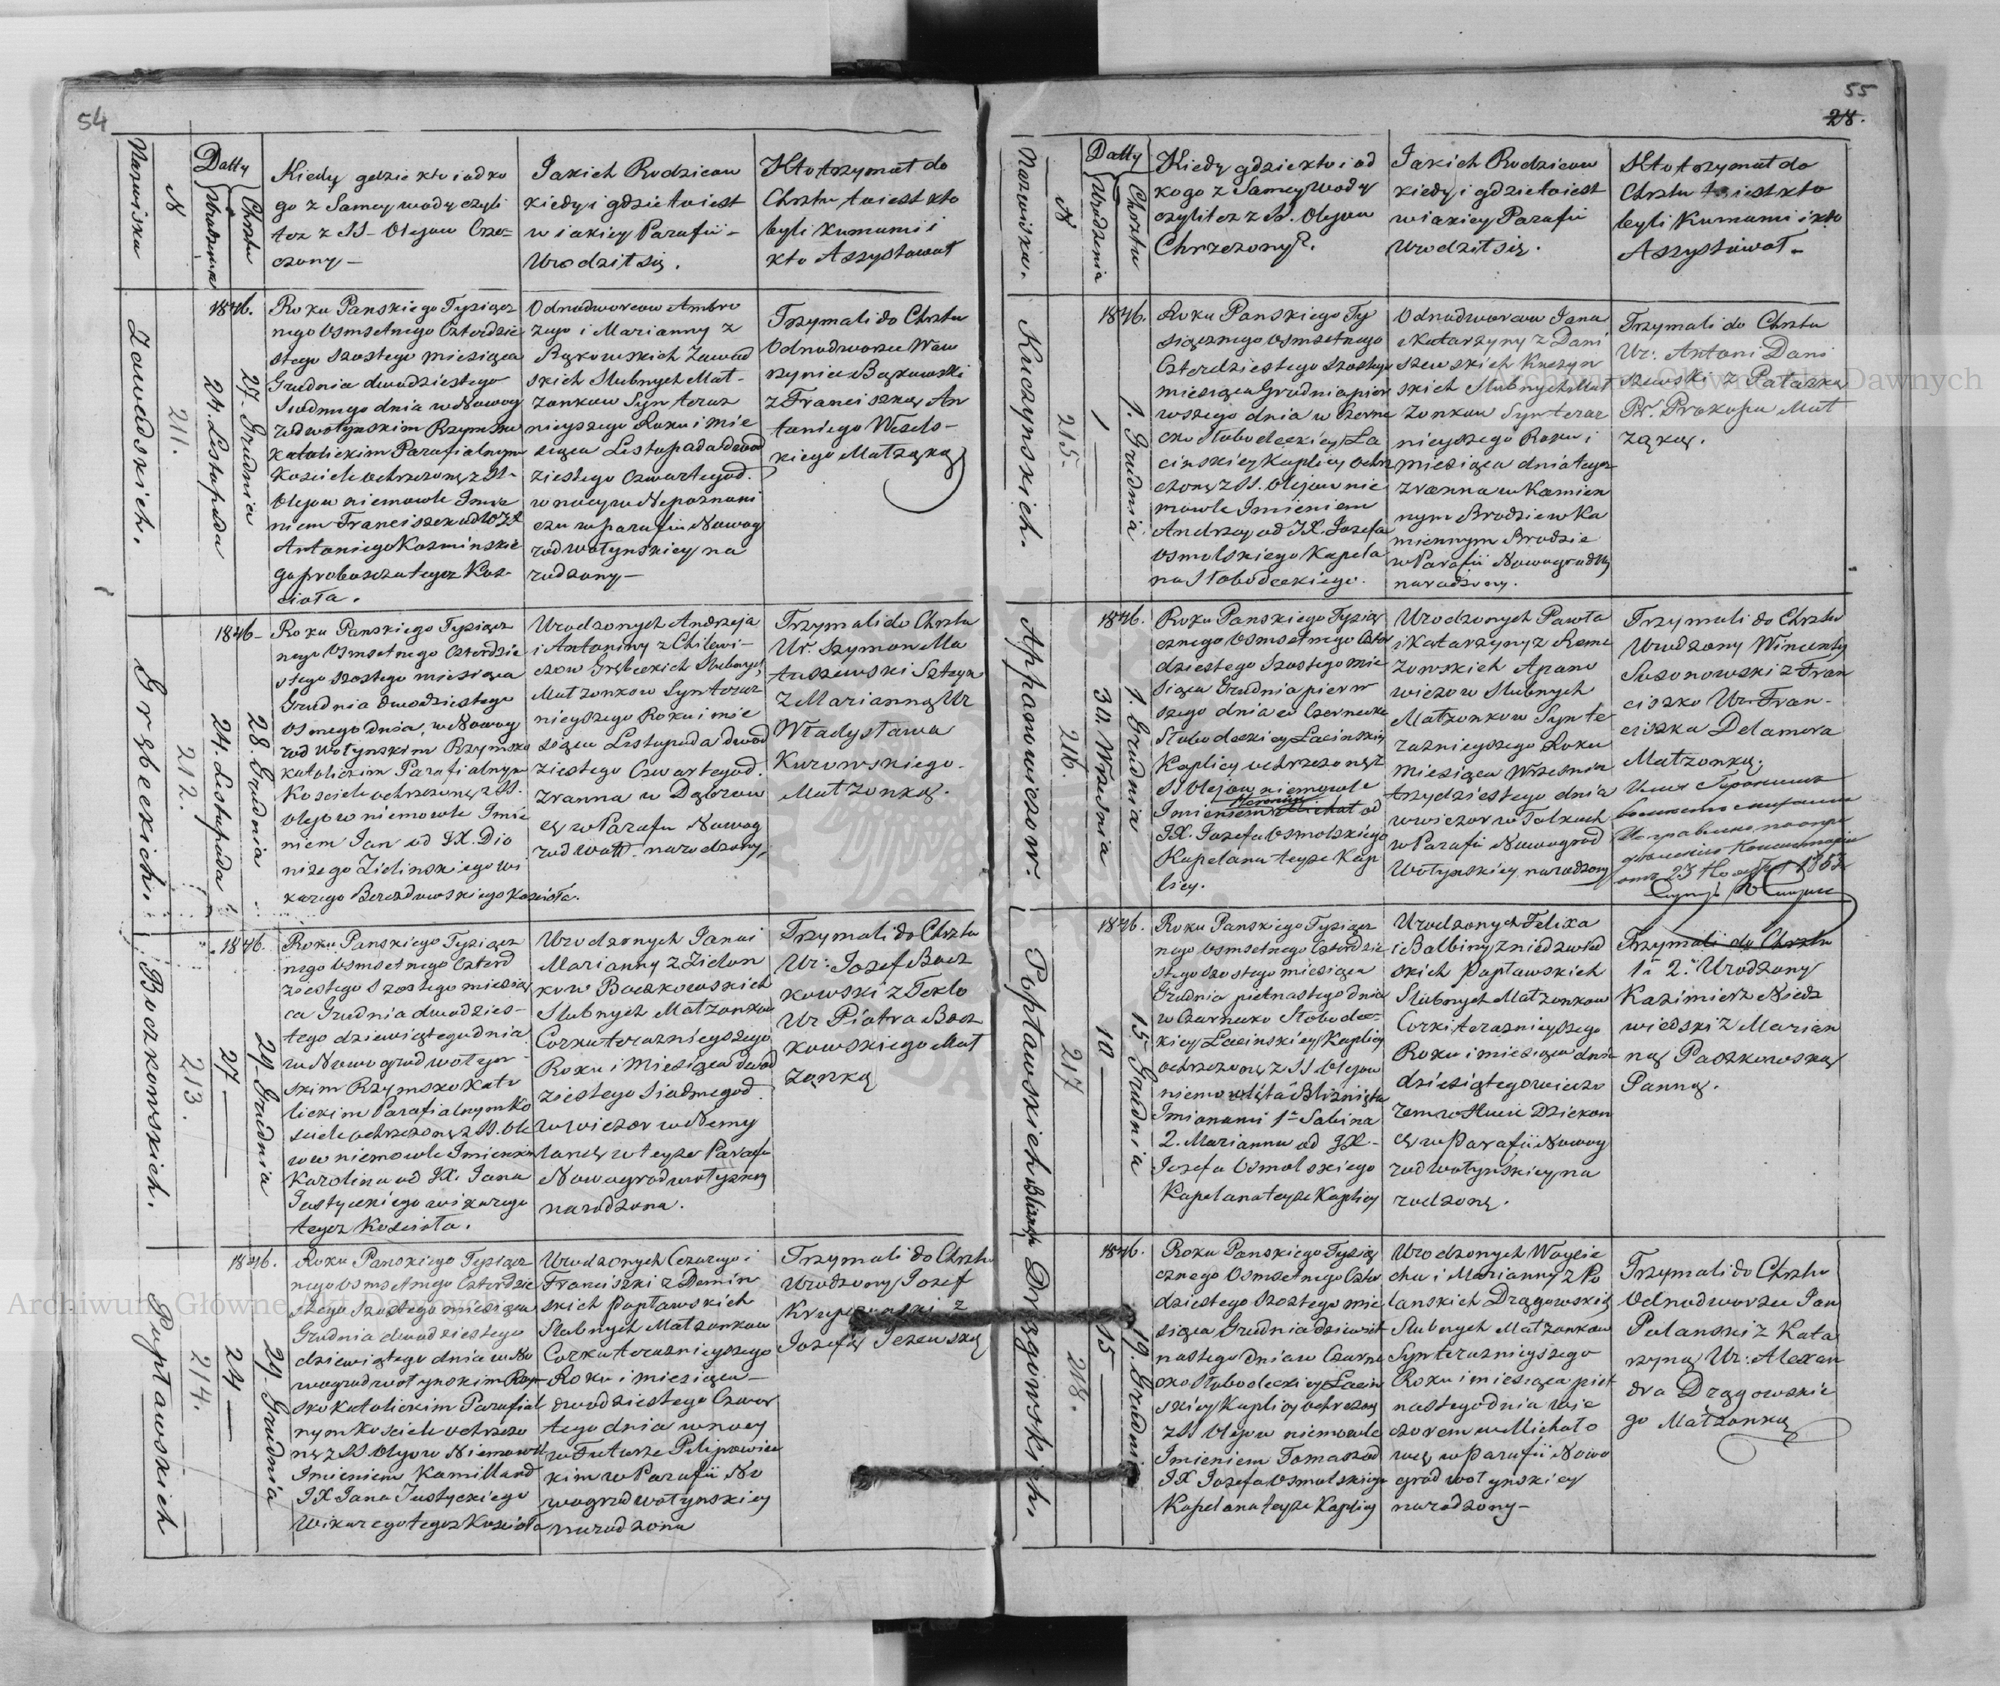 54
Nazwiska
N
Datty
Urodzenia
Chrztu
Kiedy gdzie kto i od ko
go z Samey wody czyli
tez z SS. Olejow Chrz-
czony –
Jakich Rodzicow
kiedy i gdzie to iest
w iakiey Parafii –
Urodził się.
Kto trzymał do
Chrztu to iest kto
byli Kumami i
kto Assystował
Zawadskich.
211.
1846.
24. Listopada
27. Grudnia
Roku Panskiego Tysiącz
nego Osmsetnego Czterdzie
stego szostego miesiąca
Grudnia dwudziestego
Siodmego dnia w Nowog
rodwołynskim Rzymsko
katolickim Parafialnym
Kosciele ochrzczony z SS-
Olejow niemowle Imie
niem Franciszek od WJX
Antoniego Kozminskie
go proboszcza tegoz Kos-
cioła.
Odnodworcow Ambro
zego i Marianny z
Bąkowskich Zawad
skich Slubnych Mał-
zonkow Syn teraz
nieyszego Roku i mie
siąca Listopada dwud
ziestego Czwartego d.
w nocy w Nepoznani
czu w parafii Nowog
rodwołynskiey na
rodzony –
Trzymali do Chrztu
Odnodworzec Waw
rzyniec Bąkowski
z Franciszką An
toniego Wesels-
kiego Małząką
Grzbeckich.
212.
1846-
24. Listopada
28. Grudnia
Roku Panskiego Tysiącz
nego Osmsetnego Czterdzie
stego szostego miesiąca
Grudnia dwudziestego
osmego dnia, w Nowog
rod Wołynskim Rzymsko
katolickim Parafialnym
Kosciele ochrzczony z SS.
Olejow niemowle Imie
niem Jan od JX. Dio
nizego Zielinskiego wi
karego Berezdowskiego Koscioła.
Urodzonych Andrzeja
i Antoniny z Chilewi-
czow Grębeckich Slubnych
Małzonkow Syn teraz
nieyszego Roku i mie
siąca Listopada dwud
ziestego Czwartego d.
zranna w Dąbrow
cy w Parafii Nowog
rod Woł. narodzony,
Trzymali do Chrztu
Ur. Szymon Ma
tuszewski
z Marianną Ur
Władysława
Kurowskiego.
Małzonką.
Boczkowskich.
213.
1846.
27 —
29. Grudnia
Roku Panskiego Tysiącz
nego Osmsetnego Czterd
ziestego Szostego miesią
ca Grudnia dwudzies-
tego dziewiątego dnia
w Nowogrodwołyn-
skim Rzymsko Kato
lickim Parafialnym Ko
sciele ochrzczoną z SS. Ole
iow niemowle Imieniem
Karolina od JX. Jana
Justyckiego wikarego
tegoz Koscioła.
Urodzonych Jana i
Marianny z Zielon
kow Boczkowskich
Slubnych Małzonkow
Corka teraznieyszego
Roku i Miesiąca dwud
ziestego Siodmego d.
w wieczor w Niemy
lancy w teyze Parafii
Nowogrodwołynskiey
narodzona.
Trzymali do Chrztu
Ur: Jozef Bocz
kowski z Teklo
Ur Piotra Bocz
kowskiego Mał
zonką
Popławskich
214.
1846.
24 —
29. Grudnia
Roku Panskiego Tysiącz
nego Osmsetnego Czterdzie
stego Szostego miesiąca
Grudnia dwudziestego
dziewiątego dnia w No
wogrodwołynskim Rzym-
sko Katolickim Parafial
nym Kosciele ochrzczo
ną z SS Olejow Niemowle
Imieniem Kamilla od
JX Jana Justyckiego
Wikarego tegoz Koscioła
Urodzonych Cezarego i
Franciszki z Domin
skich Popławskich
Slubnych Małzonkow
Corka teraznieyszego
Roku i miesiąca —
dwudziestego Czwar
tego dnia w nocy
w Futorze Pilipowiec
kim w Parafii No
wogrodwołynskiey
narodzona
Trzymali do Chrztu
Urodzony Jozef
z
Jozefą Jezewską
55
28.
Nazwiska.
N
Datty
Urodzenia
Chrztu
Kiedy gdzie kto i od
kogo z Samey wody
czyli tez z SS. Olejow
Chrzczony?.
Jakich Rodzicow
kiedy i gdzie to iest
w iakiey Parafii
Urodził się.
Kto trzymał do
Chrztu to iest kto
byli Kumami i kto
Assystował –
Kuczynskich.
215.
1846.
1 —
1. Grudnia
Roku Panskiego Ty
siącznego Osmsetnego
Czterdziestego Szostego
miesiąca Grudnia pier
wszego dnia w Czerne
cko Słobodeckiey Ła
cinskiey Kaplicy ochrz
czony z SS. Olejow nie
mowle Imieniem
Andrzey od JX. Jozefa
Osmolskiego Kapela
na Słobodeckiego.
Odnodworcow Jana
i Katarzyny z Dani
szewskich Kuczyn
skich Slubnych Mał
zonkow Syn teraz
nieyszego Roku i
miesiąca dnia tegoz
zranna w Kamien
nym Brodzie w Ka
miennym Brodzie
w Parafii Nowogrodwoł
narodzony.
Trzymali do Chrztu
Ur: Antoni Dani
szewski z Pałaszką
Pr. Prokopa Mał
ząką.
Appanowiczow.
216.
1846.
30. Wrzesnia
1. Grudnia
Roku Panskiego Tysią
cznego Osmsetnego Czter
dziestego Szostego mie
siąca Grudnia pierw
szego dnia w Czernecko
Słobodeckiey Łacinskiey
Kaplicy ochrzczony z
SS Olejow niemowle
Imieniem Michał od
JX. Jozefa Osmolskiego
Kapelana teyze Kap
licy.
Urodzonych Pawła
i Katarzyny z Reme
zowskich Apano
wiczow Slubnych
Małzonkow Syn te
raznieyszego Roku
Miesiąca Wrzesnia
trzydziestego dnia
w wieczor w Tokach
w Parafii Nowogrod
Wołynskiey narodzony
Trzymali do Chrztu
Urodzony Wincenty
Sosonowski z Fran
ciszko Ur. Fran-
ciszka Delamora
Małzonką.
Popławskich Bliznięta
217.
1846.
10 —
15. Grudnia
Roku Panskiego Tysiącz
nego Osmsetnego Czterdzie
stego Szostego miesiąca
Grudnia pietnastego dnia
w Czarnecko Słobodec-
kiey Łacinskiey Kaplicy
ochrzczone z SS Olejow
niemowlęta Bliznięta
Imionami 1a Sabina
2. Marianna od JX-
Jozefa Osmolskiego
Kapelana teyze Kaplicy
Urodzonych Felixa
i Balbiny z Niedzwied
skich Popławskich
Slubnych Małzonkow
Corki teraznieyszego
Roku i miesiąca dnia
dziesiątego wieczo
rem w Hucie Dziekon
cy w Parafii Nowog
rodwołynskiey na
rodzone.
Trzymali do Chrztu
1a 2a Urodzony
Kazimierz Niedz
wiedski z Marian
ną Paszkowską
Panną.
Drągowskich.
218.
1846.
15 —
19. Grudnia
Roku Panskiego Tysią
cznego Osmsetnego Czter
dziestego Szostego mie
siąca Grudnia dziewięt
nastego dnia w Czarne
cko Słobodeckiey Łacin
skiey Kaplicy ochrzczony
z SS Olejow niemowle
Imieniem Tomasz od
JX Jozefa Osmolskiego
Kapelana teyze Kaplicy
Urodzonych Woycie
cha i Marianny z Po
lanskich Drągowskich
Slubnych Małzonkow
Syn teraznieyszego
Roku i miesiąca pięt
nastego dnia wie
czorem w Michało
wce w Parafii Nowo
grodwołynskiey
narodzony –
Trzymali do Chrztu
Odnodworzec Jan
Polanski z Kata
rzyną Ur: Alexan
dra Drągowskie
go Małzonką